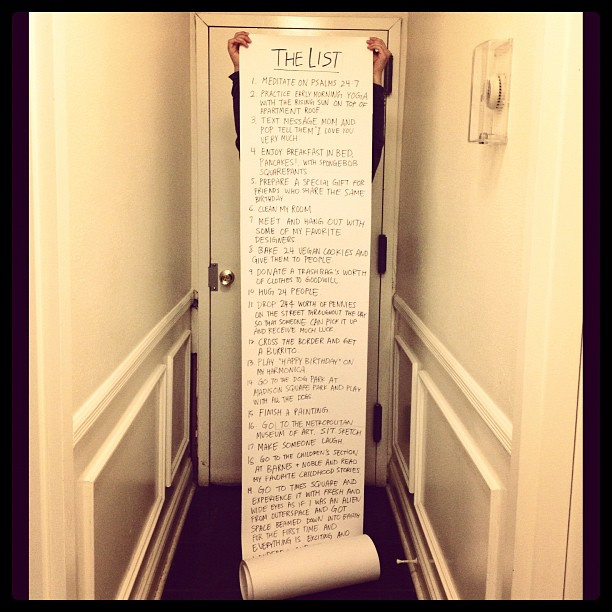 THE LIST
1. MEDITATE ON PSALMS 24:7
2. PRACTICE EARLY MORNING YOGA
WITH THE RISING SUN ON TOP OF
APARTMENT ROOF
3. TEXT MESSAGE MOM AND
POP. TELL THEM "I LOVE YOU
VERY MUCH
4. ENJOY BREAKFAST IN BED,
PANCAKES! WITH SPONGEBOB
SQUAREPANTS
5. PREPARE A SPECIAL GIFT FOR
FRIENDS WHO SHARE THE SAME
BIRTHDAY
6. CLEAN MY ROOM
7. MEET AND HANG OUT WITH
SOME OF MY FAVORITE
DESIGNERS
8. BAKE 24 VEGAN COOKIES AND
GIVE THEM TO PEOPLE
9. DONATE A TRASHBAG'S WORTH
OF CLOTHES TO GOODWILL
10. HUG 24 PEOPLE
11. DROP 24¢ WORTH OF PENNIES
ON THE STREET THROUGHOUT THE DAY
SO THAT SOMEONE CAN PICK IT UP
AND RECEIVE MUCH LUCK
12. CROSS THE BORDER AND GET
A BURRITO
13. PLAY "HAPPY BIRTHDAY" ON
MY HARMONICA
14. GO TO THE DOG PARK AT
MADISON SQUARE PARK AND PLAY
WITH ALL THE DOGS
15. FINISH A PAINTING
16. GO TO THE METROPOLITAN
MUSEUM OF ART. SIT. SKETCH
17. MAKE SOMEONE LAUGH
18. GO TO THE CHILDREN'S SECTION
AT BARNES + NOBLE AND READ
MY FAVORITE CHILDHOOD STORIES
19. GO TO TIMES SQUARE AND
EXPERIENCE IT WITH FRESH AND
WIDE EYES AS IF I WAS AN ALIEN
FROM OUTERSPACE AND GOT
SPACE BEAMED DOWN INTO EARTH
FOR THE FIRST TIME AND
EVERYTHING IS EXCITING AND